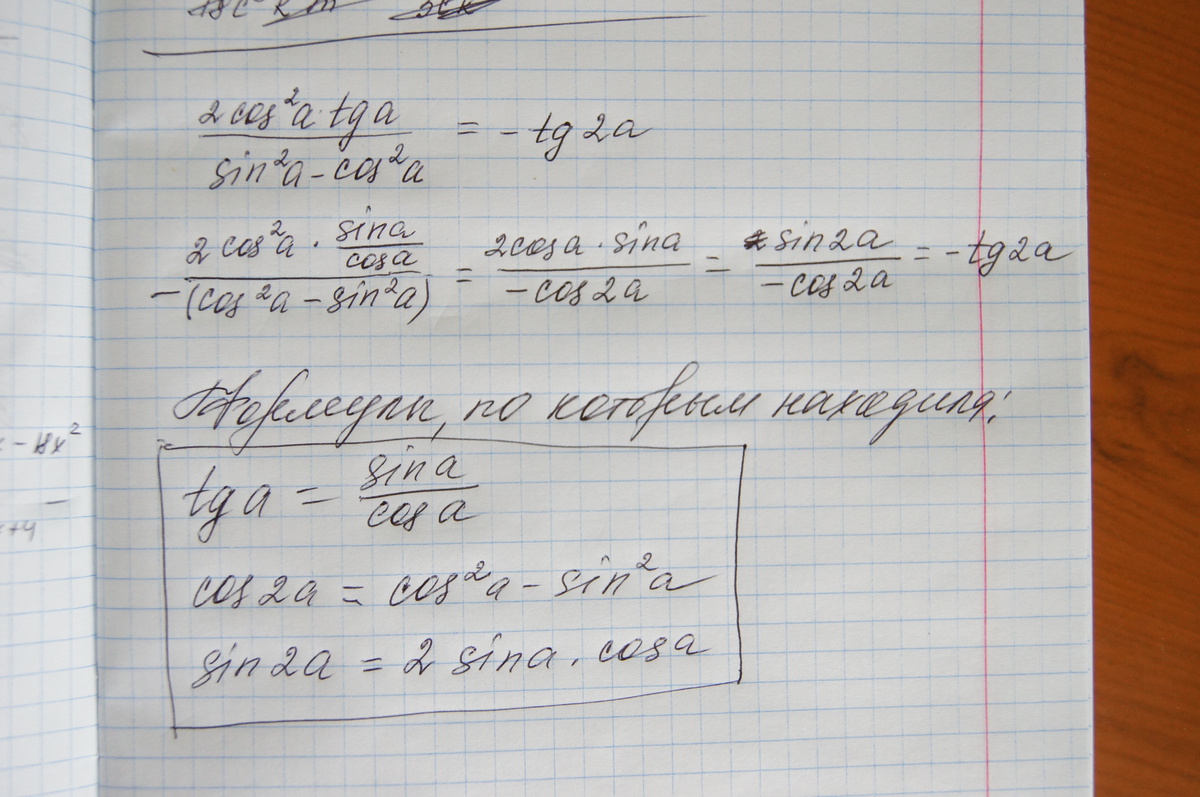 2cos²a·tga / sin²a - cos²a = - tg2a
2cos²a · sina/cosa / -(cos²a - sin²a) = 2cosa · sina / -cos2a = sin2a / -cos2a = -tg2a
Формулы, по которым находила:
tga = sina / cosa
cos2a = cos²a - sin²a
sin2a = 2 sina · cosa